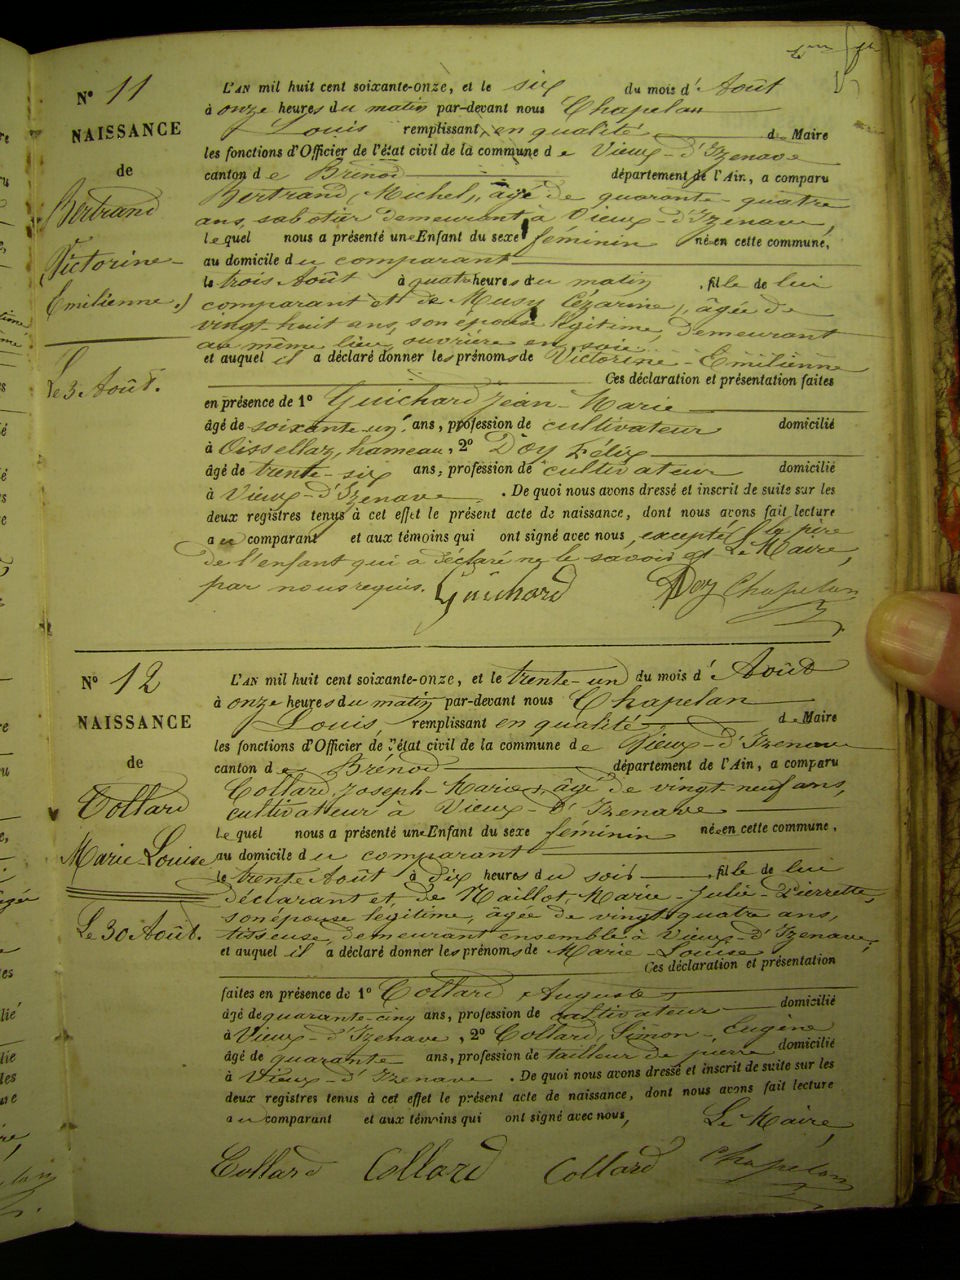 N° 11
NAISSANCE
de
Bertrand
Victorine-
Emilienne.
Le 3 Août.
L'AN mil huit cent soixante-onze, et le six du mois d'Août
à onze heures du matin par-devant nous Chapelan
Louis remplissant en qualité de Maire
les fonctions d'Officier de l'état civil de la commune de Vieux-d'Izenave
canton de Brénod département de l'Ain, a comparu
Bertrand, Michel, âgé de quarante-quatre
ans, sabotier demeurant à Vieux-d'Izenave,
lequel nous a présenté une Enfant du sexe féminin née en cette commune,
au domicile du comparant
le trois Août à quatre heures du matin, fille de lui
comparant et de Musy Cézarine, âgée de
vingt-huit ans, son épouse légitime, demeurant
au même lieu, ouvrière en soie
et auquel il a déclaré donner les prénoms de Victorine-Emilienne
Ces déclaration et présentation faites
en présence de 1° Guichard Jean-Marie
âgé de soixante-un ans, profession de cultivateur domicilié
à Oissellaz, hameau, 2° Doy Félix
âgé de trente-six ans, profession de cultivateur domicilié
à Vieux-d'Izenave. De quoi nous avons dressé et inscrit de suite sur les
deux registres tenus à cet effet le présent acte de naissance, dont nous avons fait lecture
au comparant et aux témoins qui ont signé avec nous, excepté le père
de l'enfant qui a déclaré ne le savoir et Le Maire,
par nous requis. Guichard Doy Chapelan
N° 12
NAISSANCE
de
Collard
Marie-Louise
Le 30 Août.
L'AN mil huit cent soixante-onze, et le trente-un du mois d'Août
à onze heures du matin par-devant nous Chapelan
Louis, remplissant en qualité de Maire
les fonctions d'Officier de l'état civil de la commune de Vieux-d'Izenave
canton de Brénod département de l'Ain, a comparu
Collard, Joseph-Marie, âgé de vingt-neuf ans,
cultivateur à Vieux-d'Izenave
lequel nous a présenté une Enfant du sexe féminin née en cette commune,
au domicile du comparant
le trente Août à dix heures du soir fille de lui
déclarant et de Maillot, Marie-Julie-Pierrette,
son épouse légitime, âgée de vingt-quatre ans,
tisseuse, demeurant ensemble à Vieux-d'Izenave,
et auquel il a déclaré donner les prénoms de Marie-Louise
Ces déclaration et présentation
faites en présence de 1° Collard Auguste
âgé de quarante-cinq ans, profession de cultivateur domicilié
à Vieux-d'Izenave, 2° Collard, Simon-Eugène
âgé de quarante ans, profession de tailleur de pierre domicilié
à Vieux-d'Izenave. De quoi nous avons dressé et inscrit de suite sur les
deux registres tenus à cet effet le présent acte de naissance, dont nous avons fait lecture
au comparant et aux témoins qui ont signé avec nous,
Le Maire,
Collard Collard Collard Chapelan